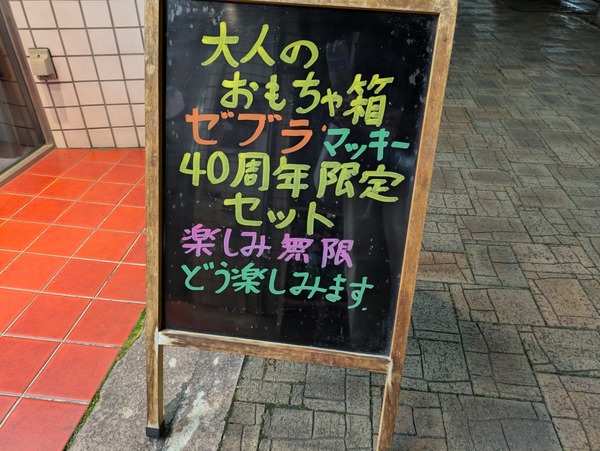 大人の
おもちゃ箱
ゼブラ マッキー
40周年限定
セット
楽しみ無限
どう楽しみます